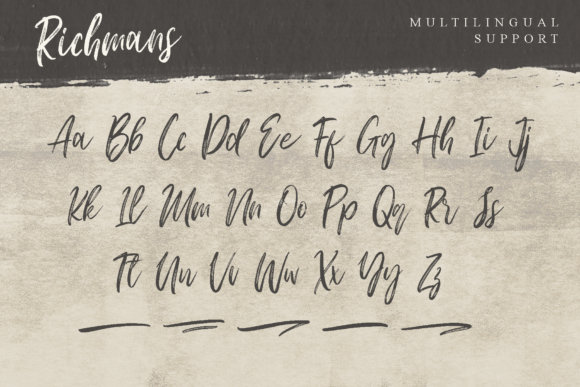 Richmans
MULTILINGUAL
SUPPORT
Aa Bb Cc Dd Ee Ff Gg Hh Ii Jj
Kk Ll Mm Nn Oo Pp Qq Rr Ss
Tt Uu Vv Ww Xx Yy Zz